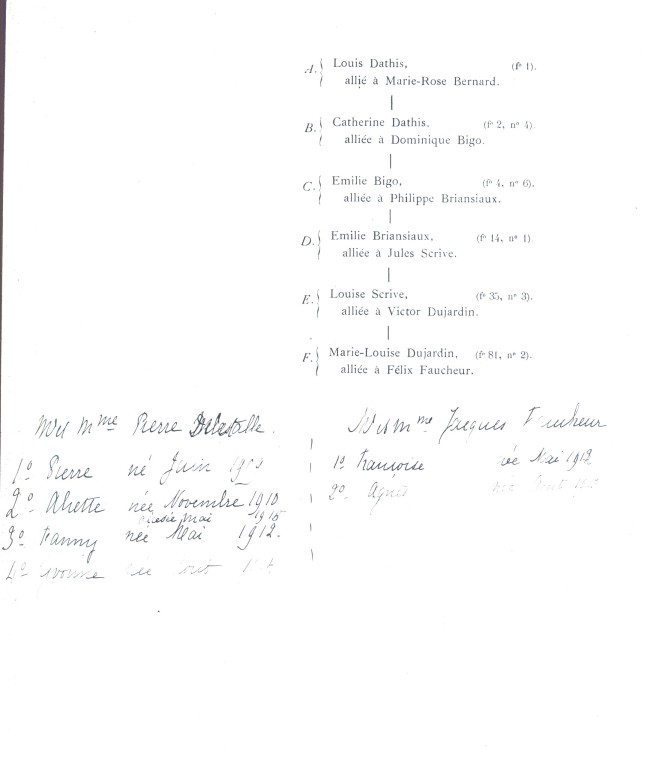 A. Louis Dathis, (fo 1).
allié à Marie-Rose Bernard.
B. Catherine Dathis, (fo 2, no 4).
alliée à Dominique Bigo.
C. Emilie Bigo, (fo 4, no 6).
alliée à Philippe Briansiaux.
D. Emilie Briansiaux, (fo 14, no 1).
alliée à Jules Scrive.
E. Louise Scrive, (fo 35, no 3).
alliée à Victor Dujardin.
F. Marie-Louise Dujardin, (fo 81, no 2).
alliée à Félix Faucheur.
Mme Pierre
1o Pierre né Juin
2o Aliette née Novembre 1910
Mai 1915
3o Fanny née Mai 1912.
4o Yvonne née
Mme Jacques Faucheur
1o Françoise née Mai 1912
2o Agnès